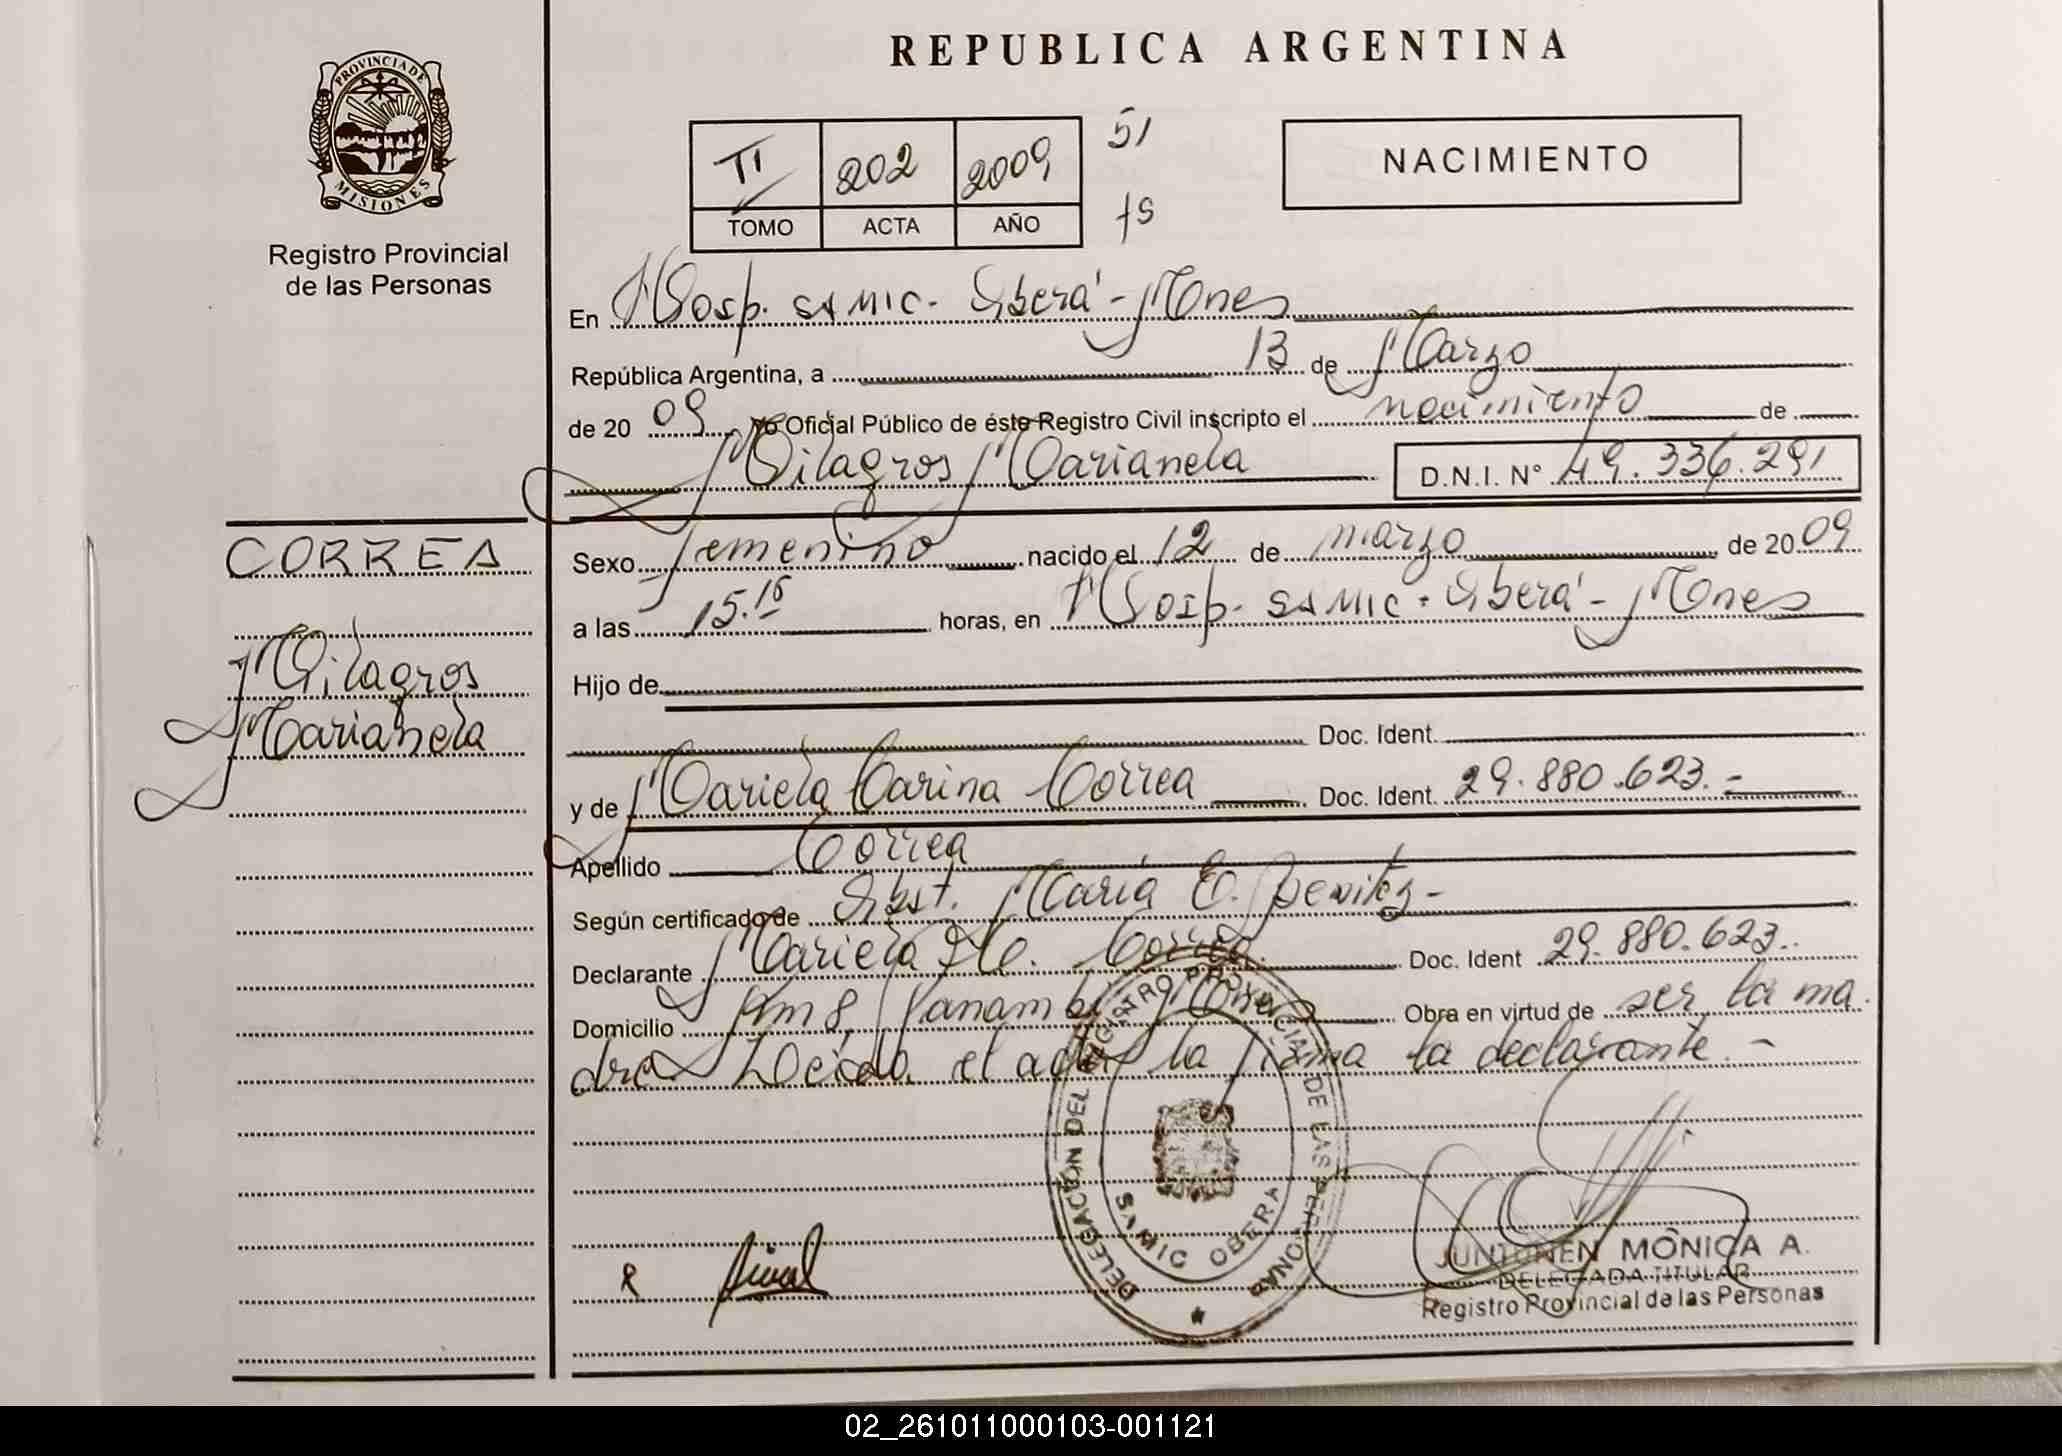 REPUBLICA ARGENTINA
PROVINCIA DE
MISIONES
Registro Provincial
de las Personas
TI 202 2009 51
TOMO ACTA AÑO fs
NACIMIENTO
En Hosp. SAMIC. Oberá - Mnes
República Argentina, a 13 de Marzo
de 2009 Yo Oficial Público de éste Registro Civil inscripto el nacimiento de
Milagros Marianela D.N.I. N° 49.336.291
CORREA
Milagros
Marianela
Sexo femenino nacido el 12 de marzo de 2009
a las 15.15 horas, en Hosp. SAMIC. Oberá - Mnes
Hijo de
Doc. Ident.
y de Mariela Carina Correa Doc. Ident. 29.880.623.-
Apellido Correa
Según certificado de Obst. María E. Benitez -
Declarante Mariela Correa Doc. Ident 29.880.623.
Domicilio Km 8, Panambí Mnes Obra en virtud de ser la ma
dre Leída el acta la firma la declarante. -
DELEGACIÓN DEL REGISTRO PROVINCIAL DE LAS PERSONAS
SAMIC OBERA
R
JUNTUNEN MÓNICA A.
DELEGADA TITULAR
Registro Provincial de las Personas
02_261011000103-001121